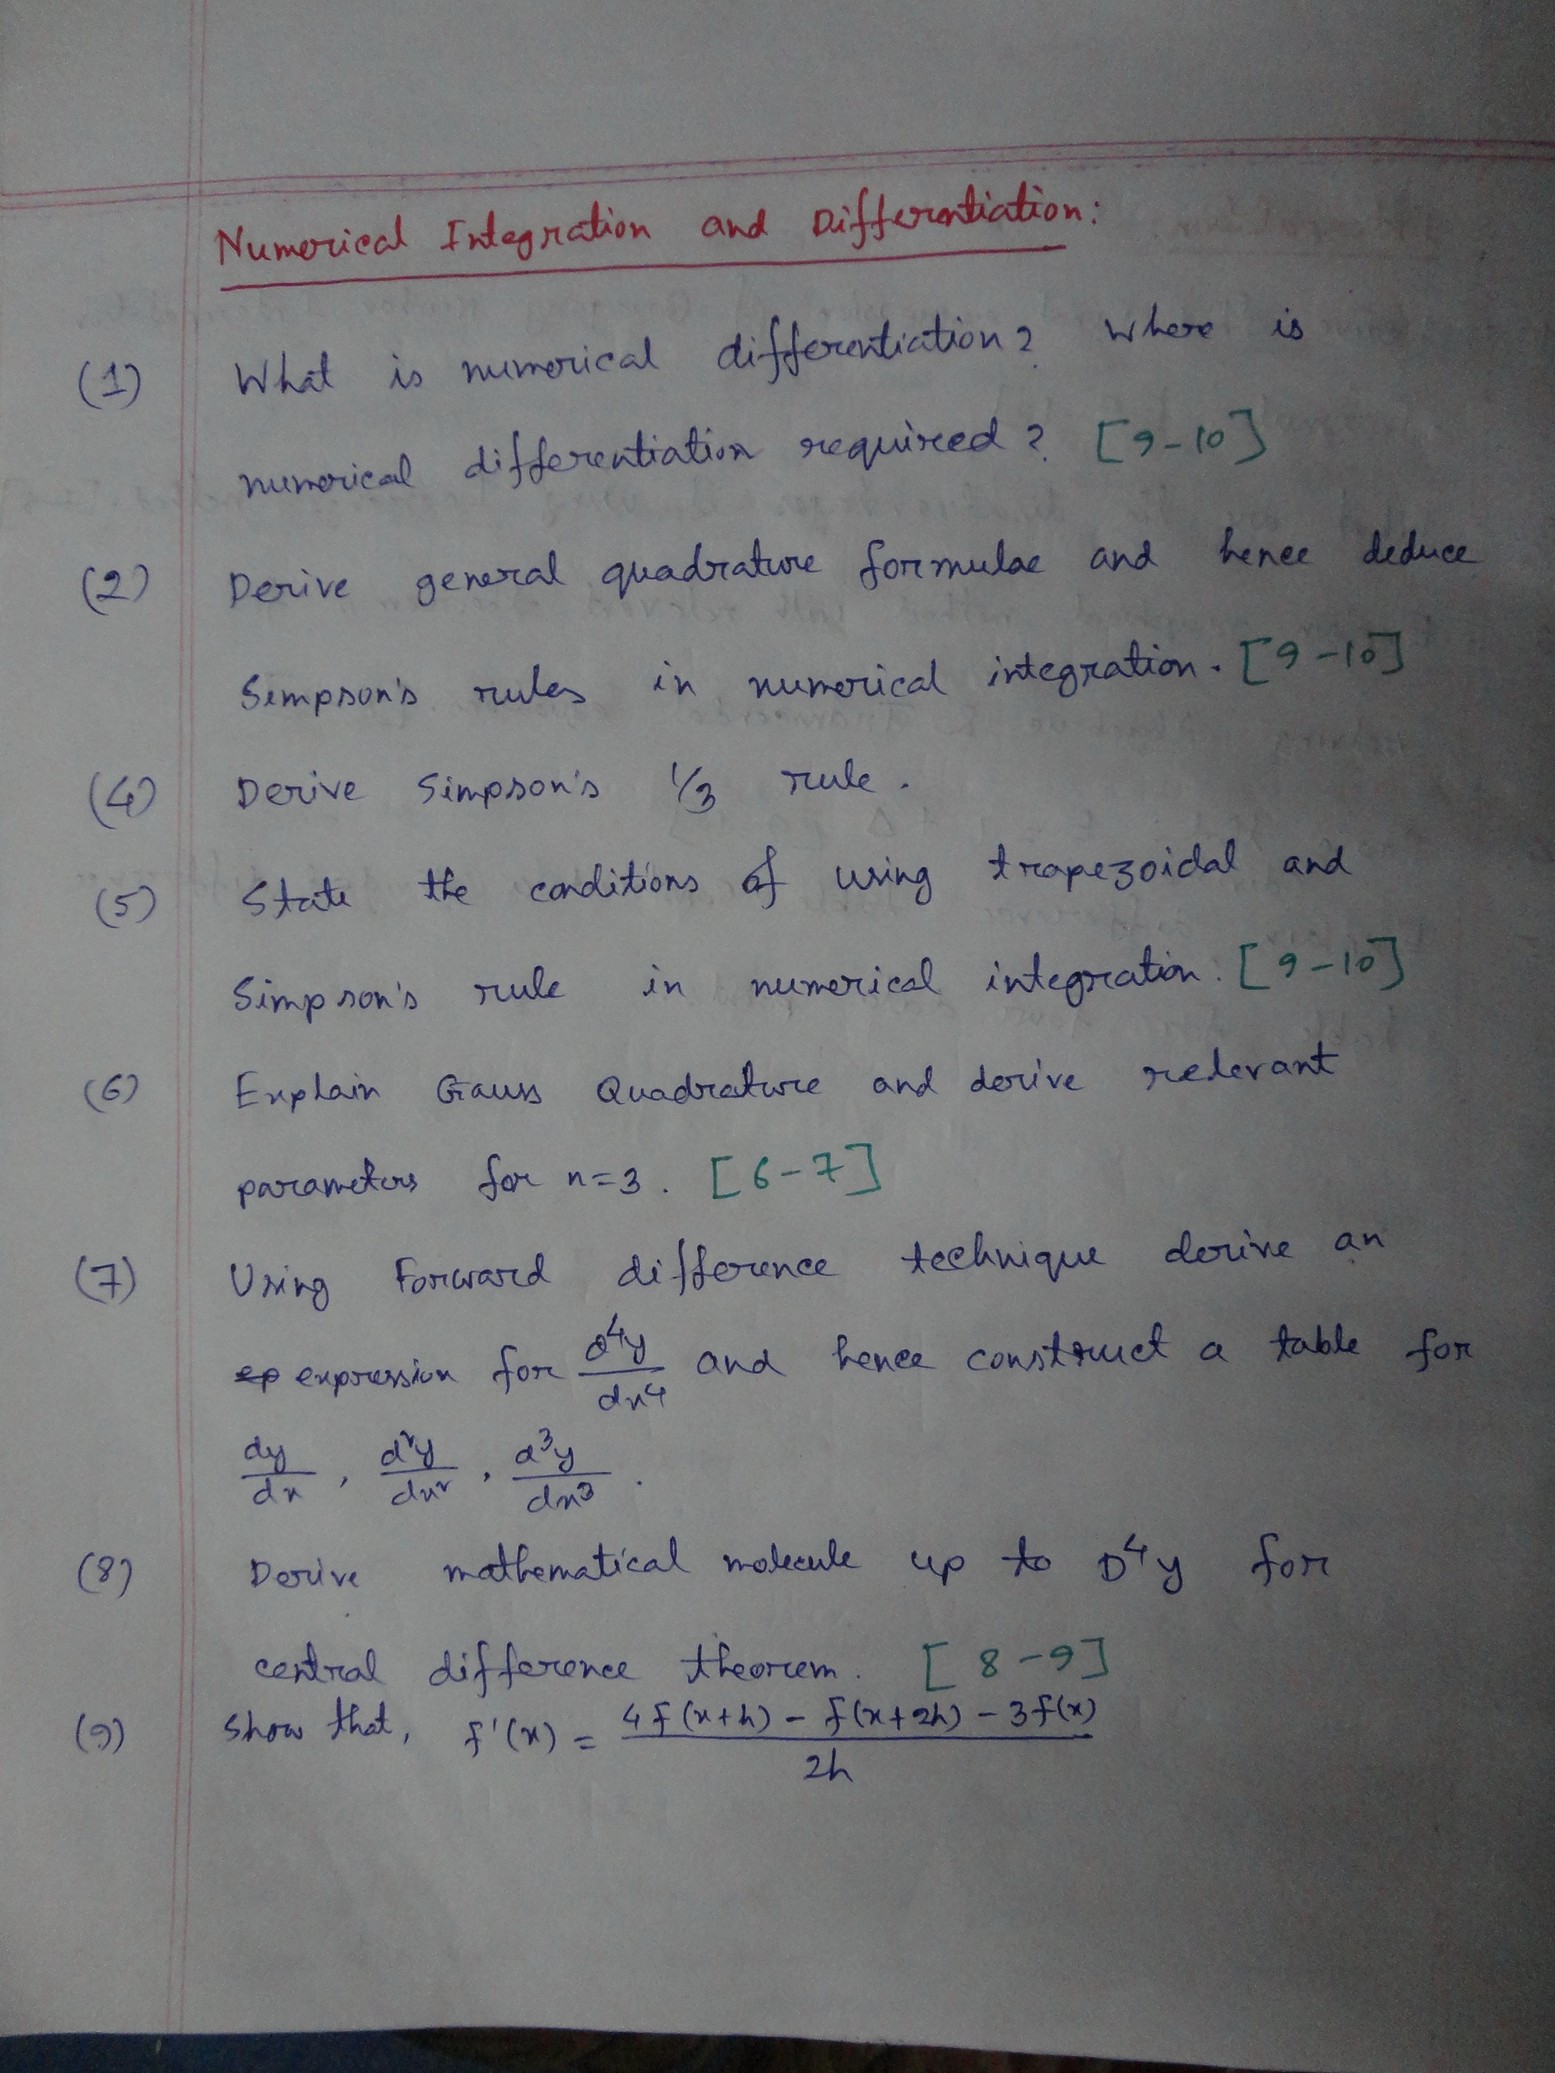 Numerical Integration and Differentiation:
(1) What is numerical differentiation? Where is
numerical differentiation required? [9-10]
(2) Derive general quadrature formulae and hence deduce
Simpson's rules in numerical integration. [9-10]
(4) Derive Simpson's 1/3 rule.
(5) State the conditions of using trapezoidal and
Simpson's rule in numerical integration. [9-10]
(6) Explain Gauss Quadrature and derive relevant
parameters for n=3. [6-7]
(7) Using Forward difference technique derive an
expression for d⁴y/dx⁴ and hence construct a table for
dy/dx, d²y/dx², d³y/dx³.
(8) Derive mathematical molecule up to D⁴y for
central difference theorem. [8-9]
(9) Show that, f'(x) = 4f(x+h) - f(x+2h) - 3f(x) / 2h